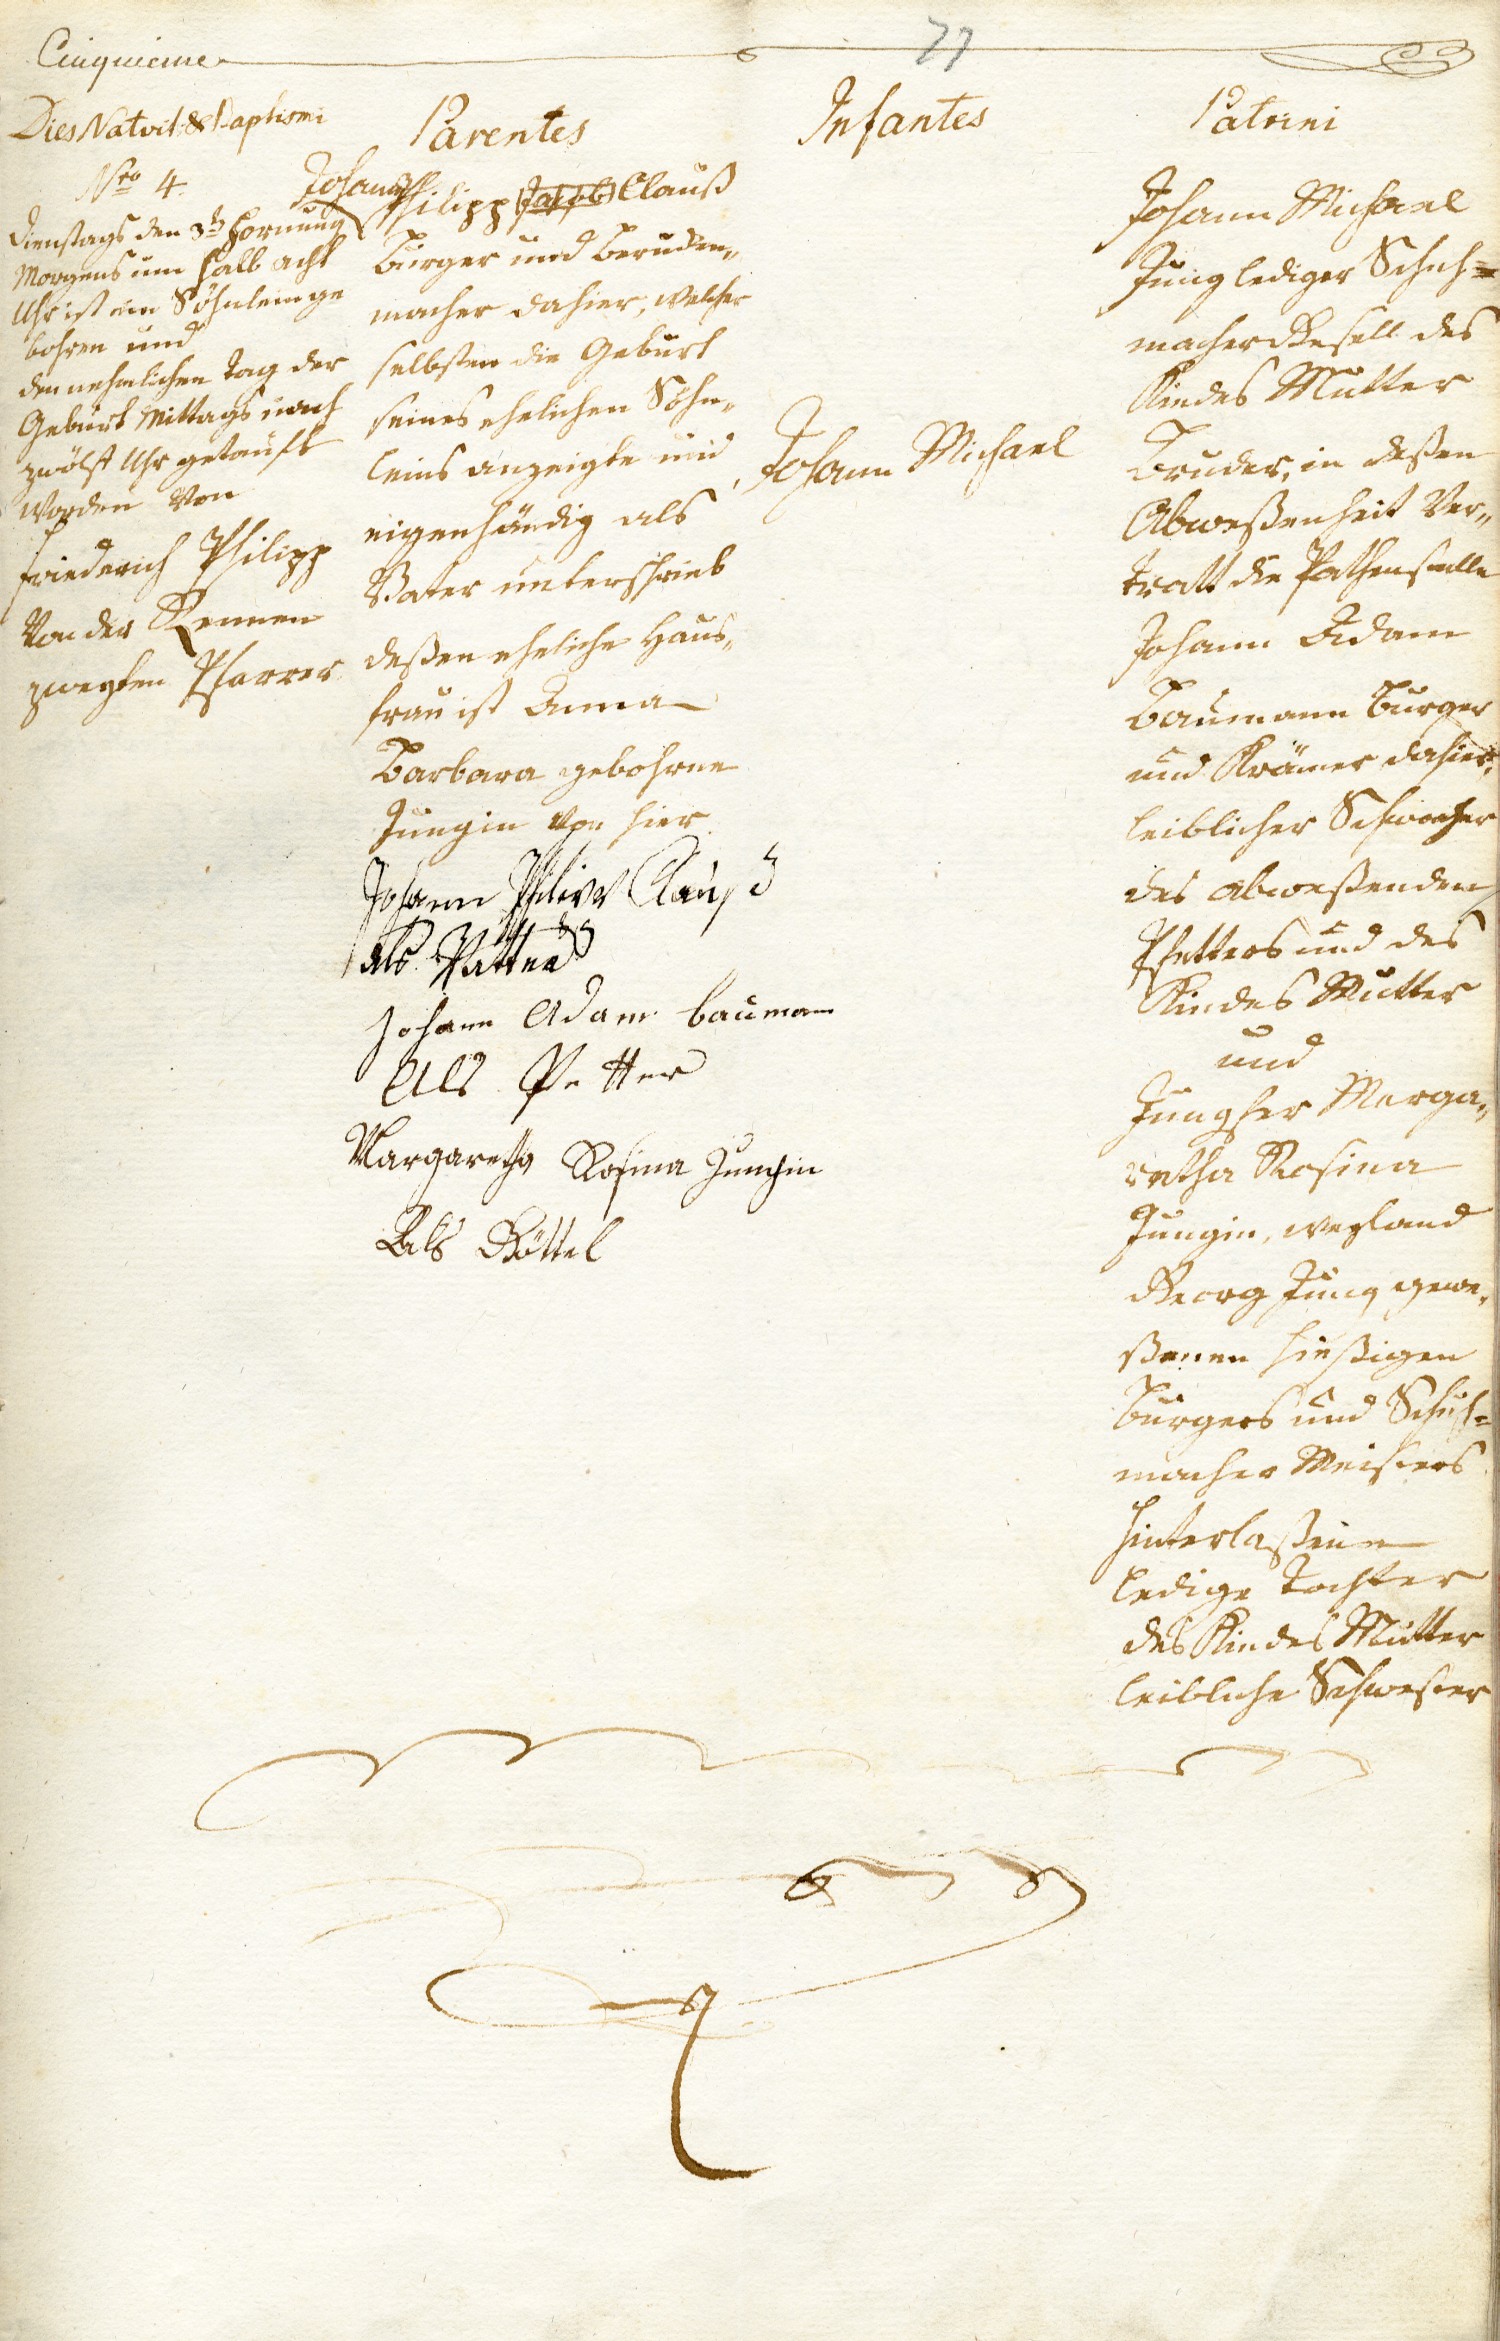 77
Cinquieme
Dies Nativit: & Baptismi
Nro 4.
Dienstags den 3t Hornung
Morgens um halb acht
Uhr ist ein Söhnlein ge
bohren und
den nehmlichen Tag der
Geburt Mittags nach
zwölf Uhr getauft
worden von
Friederich Philipp
Von der
zweyten Pfarrer
Parentes
Johann
Philipp (Jacob) Clauß
Burger und
macher dahier, welcher
selbsten die Geburt
seines ehelichen Söhn„
leins anzeigte und
eigenhändig als
Vater unterschrieb
deßen eheliche Haus„
frau ist Anna
Barbara gebohrne
Jungin von hier
Johann Philipp Clauß
als Vatter
Johann Adam baumann
Als Petter
Margaretha Rosina Jungin
Als Göttel
Infantes
Johann Michael
Patrini
Johann Michael
Jung lediger Schuh=
macher Gesell des
Kindes Mutter
Bruder, in deßen
Abweßenheit Ver„
tratt die Pathenstelle
Johann Adam
Baumann Burger
und Krämer dahier,
leiblicher Schwager
des abweßenden
Pfetters und des
Kindes Mutter
und
Jungfer Marga„
retha Rosina
Jungin, weyland
Georg Jung gewe„
ßenen hießigen
Burgers und Schuh=
macher Meisters
hinterlaßene
ledige Tochter
des Kindes Mutter
leibliche Schwester